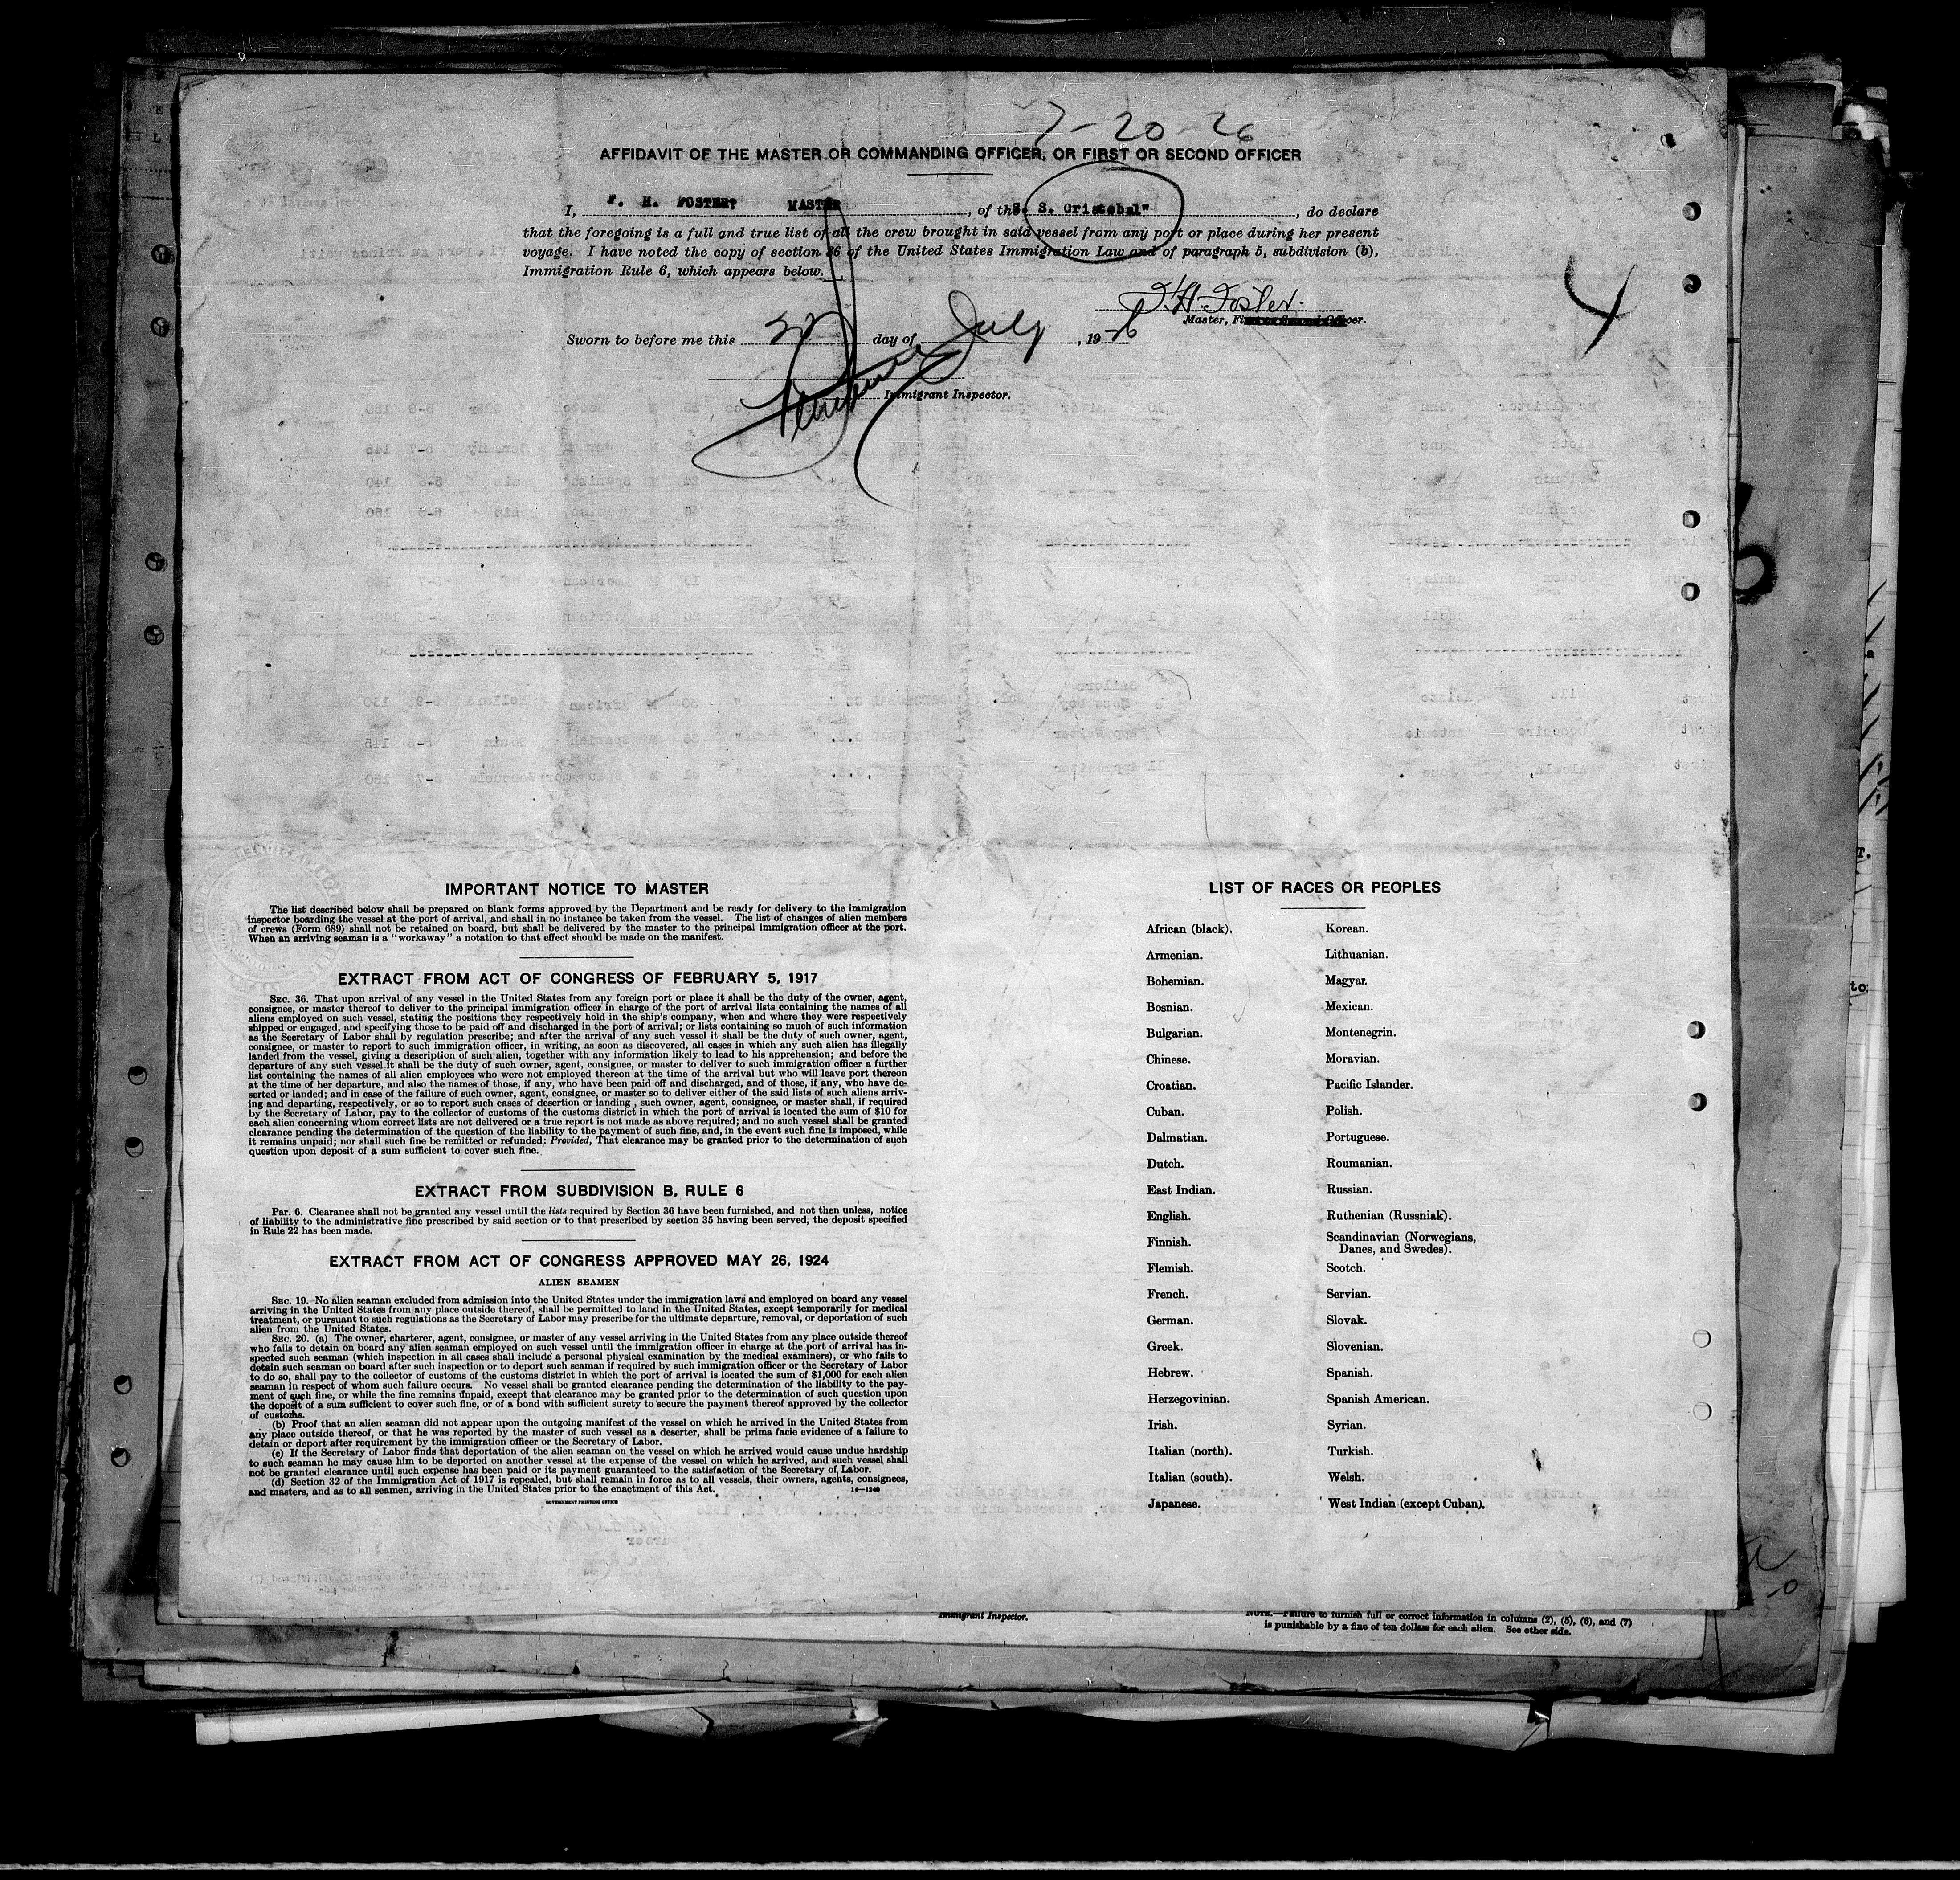 7-20-26
AFFIDAVIT OF THE MASTER OR COMMANDING OFFICER, OR FIRST OR SECOND OFFICER
I, F. H. FOSTER, MASTER, of the S. S. Cristobal", do declare
that the foregoing is a full and true list of all the crew brought in said vessel from any port or place during her present
voyage. I have noted the copy of section 36 of the United States Immigration Law and of paragraph 5, subdivision (b),
Immigration Rule 6, which appears below.
F. H. Foster.
4
Master, First or Second Officer.
Sworn to before me this 20 day of July, 1926
Immigrant Inspector.
IMPORTANT NOTICE TO MASTER
The list described below shall be prepared on blank forms approved by the Department and be ready for delivery to the immigration
inspector boarding the vessel at the port of arrival, and shall in no instance be taken from the vessel. The list of changes of alien members
of crews (Form 689) shall not be retained on board, but shall be delivered by the master to the principal immigration officer at the port.
When an arriving seaman is a "workaway" a notation to that effect should be made on the manifest.
EXTRACT FROM ACT OF CONGRESS OF FEBRUARY 5, 1917
SEC. 36. That upon arrival of any vessel in the United States from any foreign port or place it shall be the duty of the owner, agent,
consignee, or master thereof to deliver to the principal immigration officer in charge of the port of arrival lists containing the names of all
aliens employed on such vessel, stating the positions they respectively hold in the ship's company, when and where they were respectively
shipped or engaged, and specifying those to be paid off and discharged in the port of arrival; or lists containing so much of such information
as the Secretary of Labor shall by regulation prescribe; and after the arrival of any such vessel it shall be the duty of such owner, agent,
consignee, or master to report to such immigration officer, in writing, as soon as discovered, all cases in which any such alien has illegally
landed from the vessel, giving a description of such alien, together with any information likely to lead to his apprehension; and before the
departure of any such vessel it shall be the duty of such owner, agent, consignee, or master to deliver to such immigration officer a further
list containing the names of all alien employees who were not employed thereon at the time of the arrival but who will leave port thereon
at the time of her departure, and also the names of those, if any, who have been paid off and discharged, and of those, if any, who have de-
serted or landed; and in case of the failure of such owner, agent, consignee, or master so to deliver either of the said lists of such aliens arriv-
ing and departing, respectively, or so to report such cases of desertion or landing, such owner, agent, consignee, or master shall, if required
by the Secretary of Labor, pay to the collector of customs of the customs district in which the port of arrival is located the sum of $10 for
each alien concerning whom correct lists are not delivered or a true report is not made as above required; and no such vessel shall be granted
clearance pending the determination of the question of the liability to the payment of such fine, and, in the event such fine is imposed, while
it remains unpaid; nor shall such fine be remitted or refunded: Provided, That clearance may be granted prior to the determination of such
question upon deposit of a sum sufficient to cover such fine.
EXTRACT FROM SUBDIVISION B, RULE 6
Par. 6. Clearance shall not be granted any vessel until the lists required by Section 36 have been furnished, and not then unless, notice
of liability to the administrative fine prescribed by said section or to that prescribed by section 35 having been served, the deposit specified
in Rule 22 has been made.
EXTRACT FROM ACT OF CONGRESS APPROVED MAY 26, 1924
ALIEN SEAMEN
SEC. 19. No alien seaman excluded from admission into the United States under the immigration laws and employed on board any vessel
arriving in the United States from any place outside thereof, shall be permitted to land in the United States, except temporarily for medical
treatment, or pursuant to such regulations as the Secretary of Labor may prescribe for the ultimate departure, removal, or deportation of such
alien from the United States.
SEC. 20. (a) The owner, charterer, agent, consignee, or master of any vessel arriving in the United States from any place outside thereof
who fails to detain on board any alien seaman employed on such vessel until the immigration officer in charge at the port of arrival has in-
spected such seaman (which inspection in all cases shall include a personal physical examination by the medical examiners), or who fails to
detain such seaman on board after such inspection or to deport such seaman if required by such immigration officer or the Secretary of Labor
to do so, shall pay to the collector of customs of the customs district in which the port of arrival is located the sum of $1,000 for each alien
seaman in respect of whom such failure occurs. No vessel shall be granted clearance pending the determination of the liability to the pay-
ment of such fine, or while the fine remains unpaid, except that clearance may be granted prior to the determination of such question upon
the deposit of a sum sufficient to cover such fine, or of a bond with sufficient surety to secure the payment thereof approved by the collector
of customs.
(b) Proof that an alien seaman did not appear upon the outgoing manifest of the vessel on which he arrived in the United States from
any place outside thereof, or that he was reported by the master of such vessel as a deserter, shall be prima facie evidence of a failure to
detain or deport after requirement by the immigration officer or the Secretary of Labor.
(c) If the Secretary of Labor finds that deportation of the alien seaman on the vessel on which he arrived would cause undue hardship
to such seaman he may cause him to be deported on another vessel at the expense of the vessel on which he arrived, and such vessel shall
not be granted clearance until such expense has been paid or its payment guaranteed to the satisfaction of the Secretary of Labor.
(d) Section 32 of the Immigration Act of 1917 is repealed, but shall remain in force as to all vessels, their owners, agents, consignees,
and masters, and as to all seamen, arriving in the United States prior to the enactment of this Act. 14—1240
GOVERNMENT PRINTING OFFICE
LIST OF RACES OR PEOPLES
African (black). Korean.
Armenian. Lithuanian.
Bohemian. Magyar.
Bosnian. Mexican.
Bulgarian. Montenegrin.
Chinese. Moravian.
Croatian. Pacific Islander.
Cuban. Polish.
Dalmatian. Portuguese.
Dutch. Roumanian.
East Indian. Russian.
English. Ruthenian (Russniak).
Finnish. Scandinavian (Norwegians,
Danes, and Swedes).
Flemish. Scotch.
French. Servian.
German. Slovak.
Greek. Slovenian.
Hebrew. Spanish.
Herzegovinian. Spanish American.
Irish. Syrian.
Italian (north). Turkish.
Italian (south). Welsh.
Japanese. West Indian (except Cuban).
Immigrant Inspector.
NOTE.—Failure to furnish full or correct information in columns (2), (5), (6), and (7)
is punishable by a fine of ten dollars for each alien. See other side.